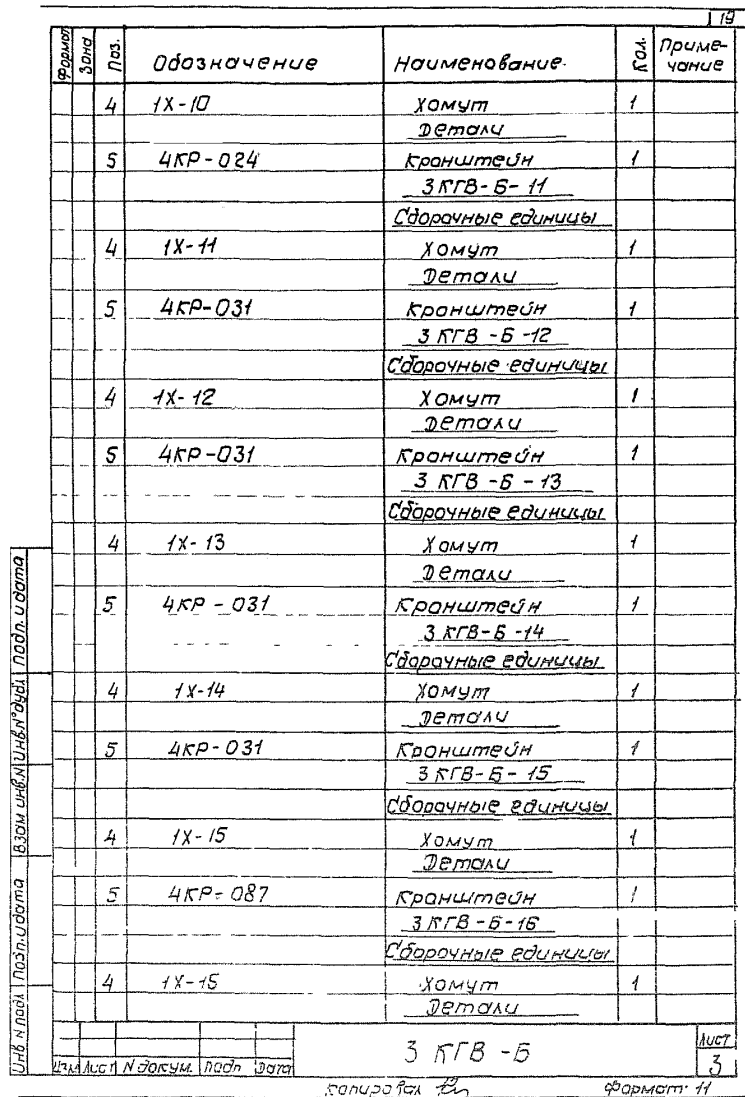 19
Формат Зона Поз. Обозначение Наименование. Кол. Приме-
чание
4 1Х-10 Хомут 1
Детали
5 4КР-024 Кронштейн 1
3 КГВ-Б-11
Сборочные единицы
4 1Х-11 Хомут 1
Детали
5 4КР-031 Кронштейн 1
3 КГВ-Б-12
Сборочные единицы
4 1Х-12 Хомут 1
Детали
5 4КР-031 Кронштейн 1
3 КГВ-Б-13
Сборочные единицы
4 1Х-13 Хомут 1
Детали
5 4КР-031 Кронштейн 1
3 КГВ-Б-14
Сборочные единицы
4 1Х-14 Хомут 1
Детали
5 4КР-031 Кронштейн 1
3 КГВ-Б-15
Сборочные единицы
4 1Х-15 Хомут 1
Детали
5 4КР-087 Кронштейн 1
3 КГВ-Б-16
Сборочные единицы
4 1Х-15 Хомут 1
Детали
Инв N подл Подп. и дата Взам инв.N Инв.N° дубл Подп. и дата
3 КГВ-Б
Лист
3
Изм Лист N докум. Подп Дата
Копировал Формат 11